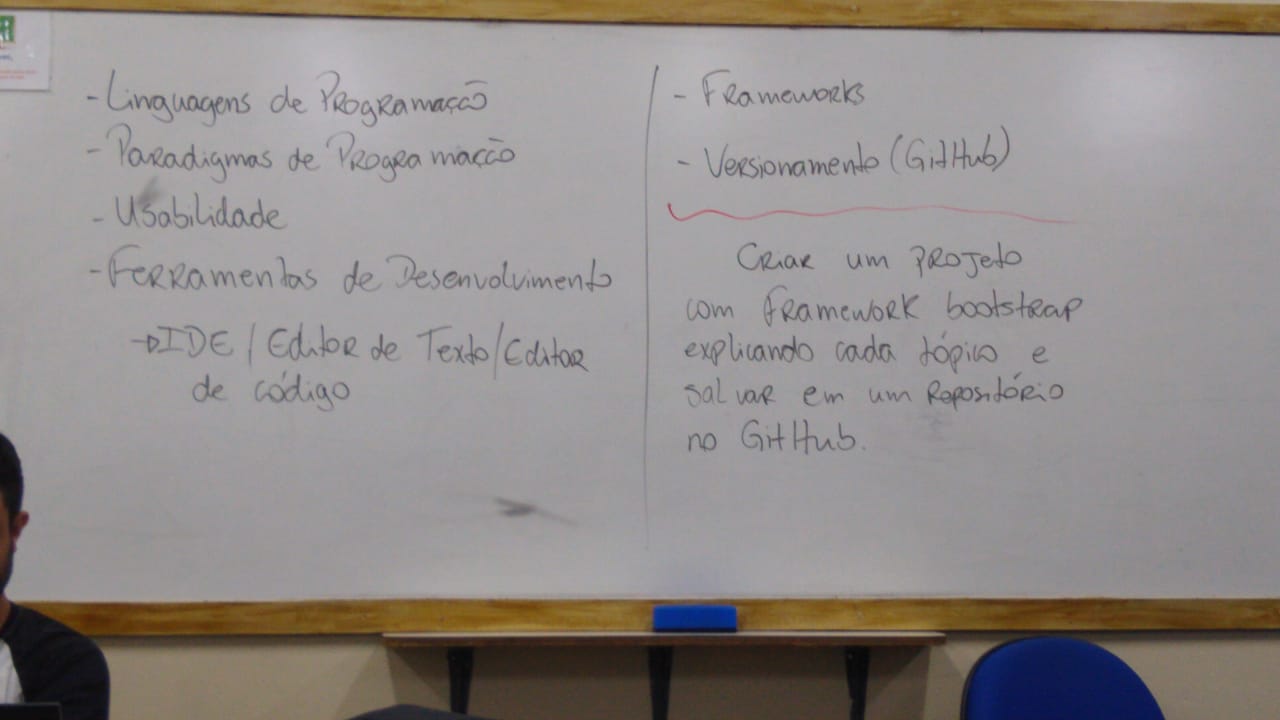 - Linguagens de Programação
- Paradigmas de Programação
- Usabilidade
- Ferramentas de Desenvolvimento
→ IDE / Editor de Texto / Editor
de código
- Frameworks
- Versionamento (GitHub)
Criar um projeto
com framework bootstrap
explicando cada tópico e
salvar em um repositório
no GitHub.